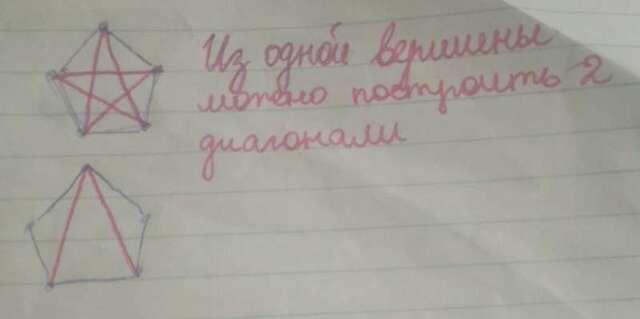 Из одной вершины
можно построить 2
диагонали